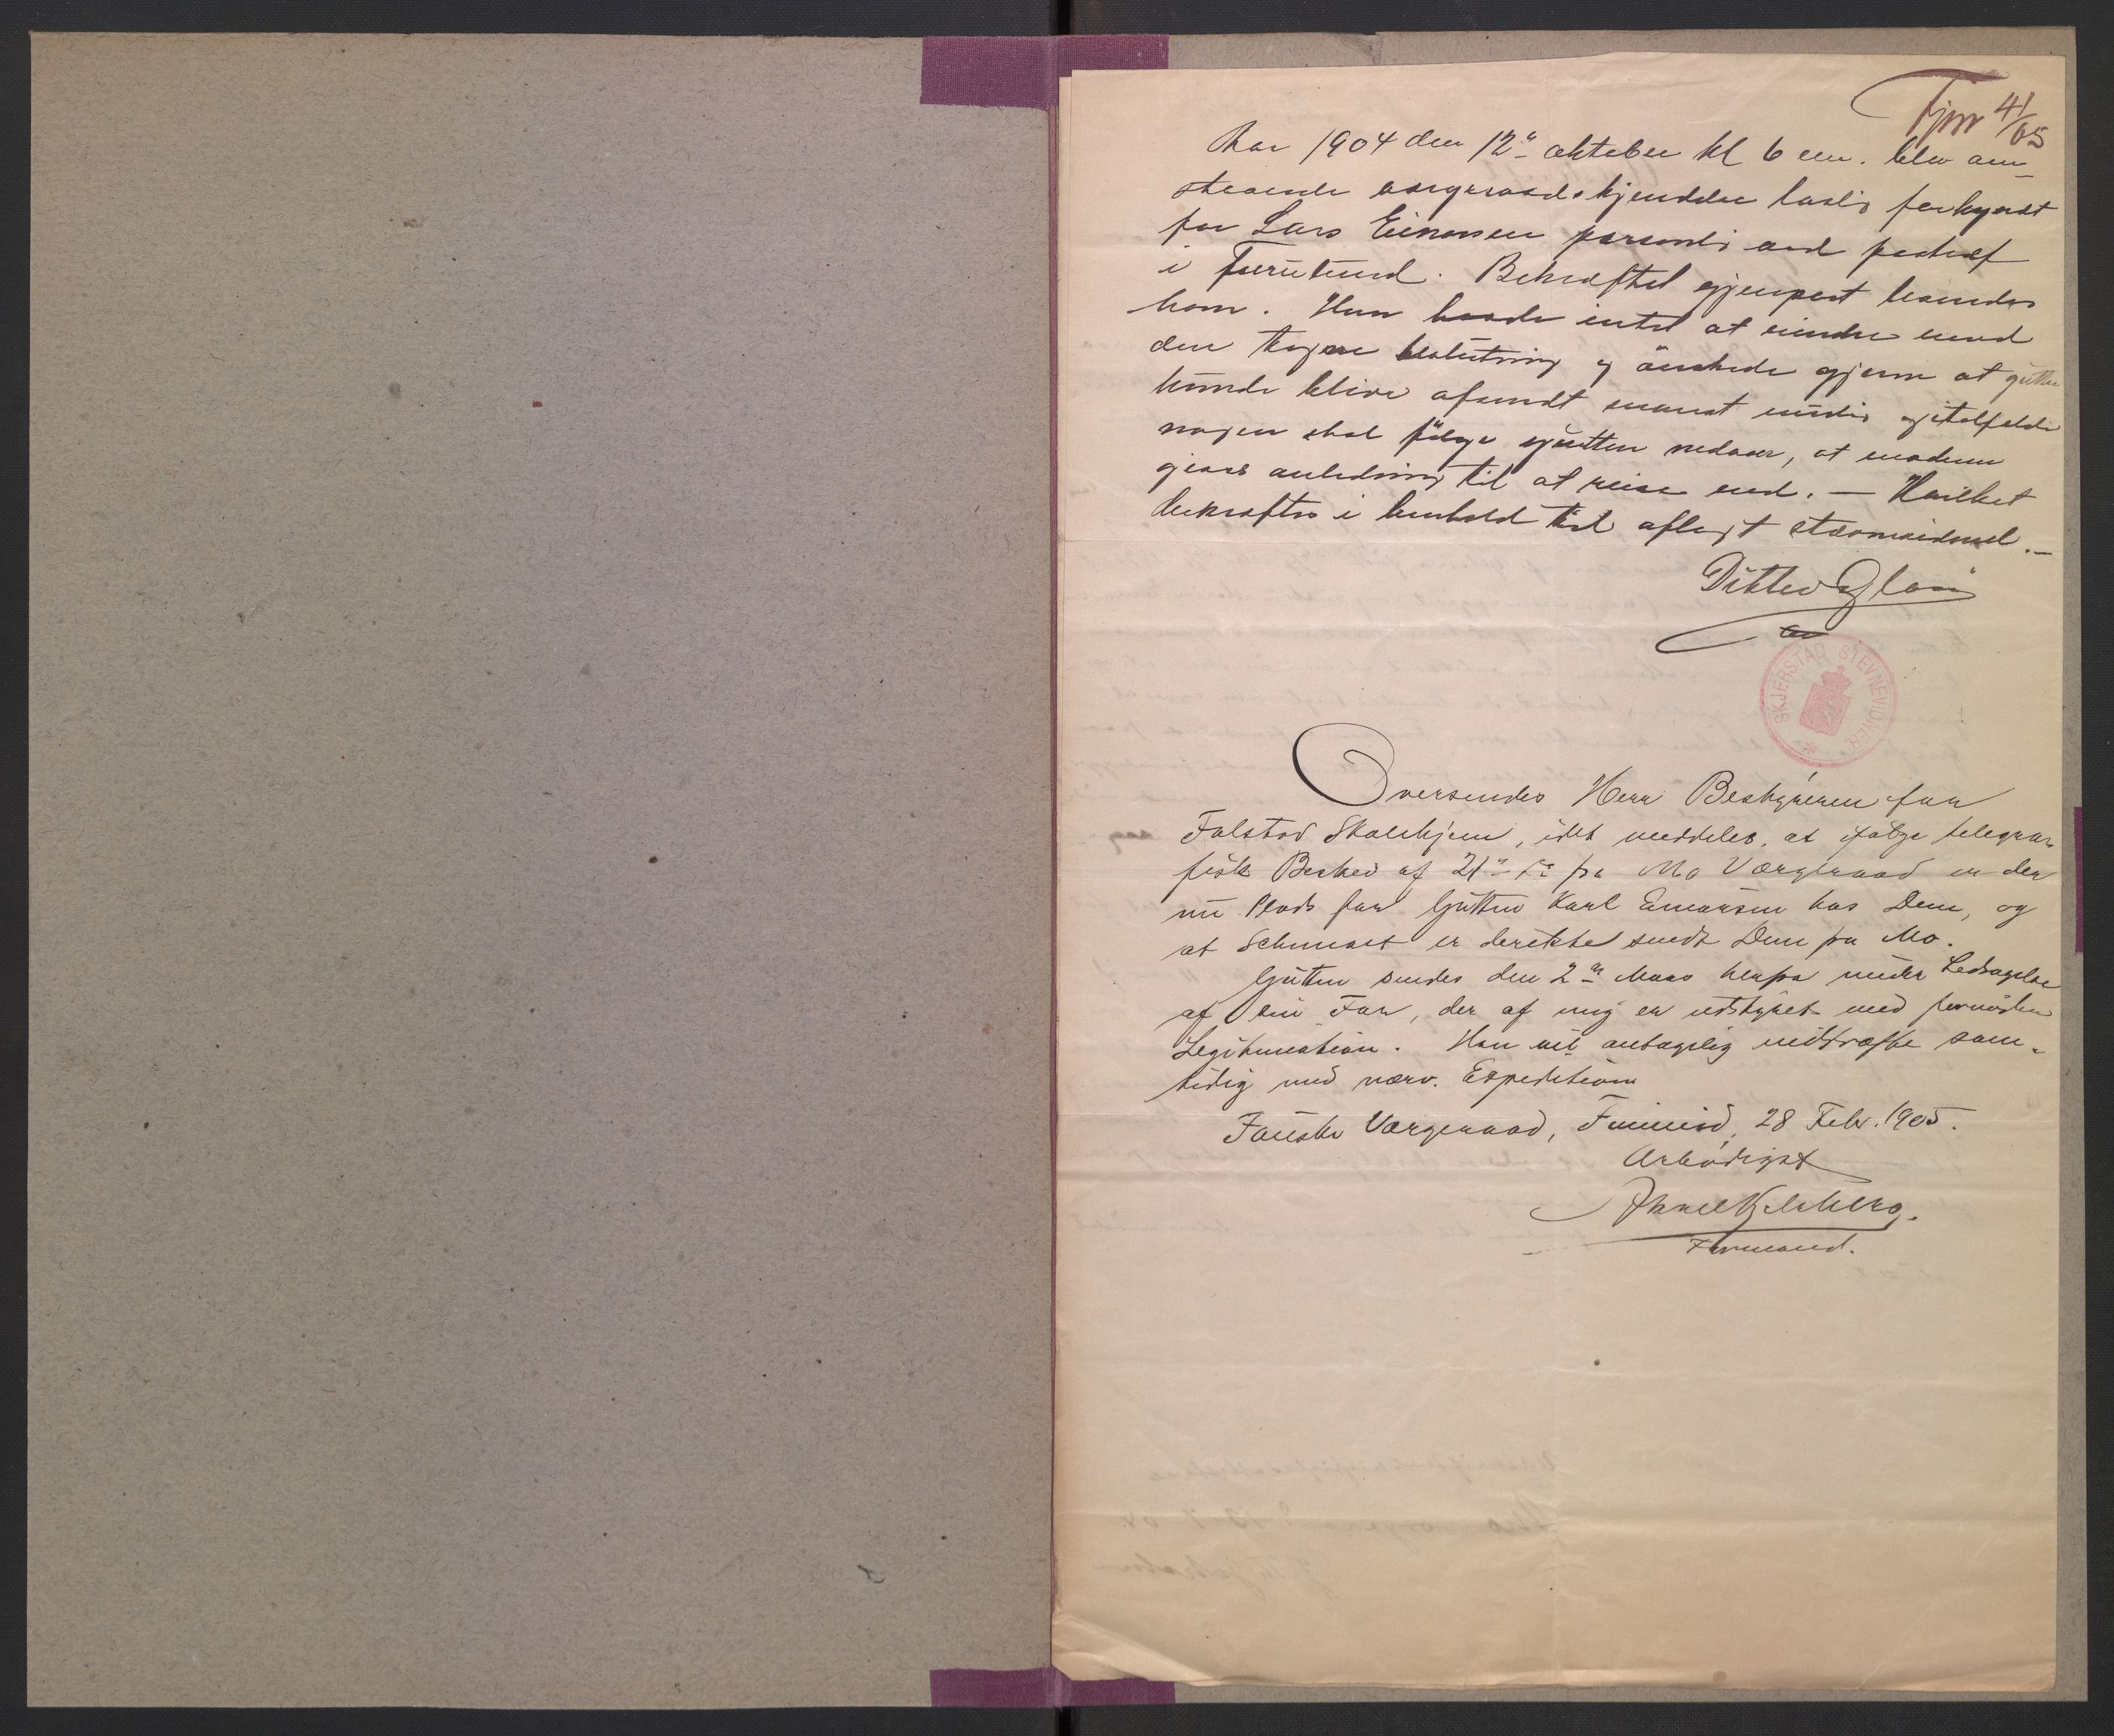 Fjnr 41/05
Aar 1904 den 12te oktober kl 6 em. blev om-
staaende vergeraadskjendelse lovlig forkyndt
for Lars Einarsen personlig ved
i Furulund. Bekræftet gjenpart
ham. Han havde intet at erindre mod
den tagne beslutning og ønskede gjerne at gutten
kunde blive afsendt snarest mulig og ifald
nogen skal følge gutten nedover, at moderen
gives anledning til at reise med. — Hvilket
bekræftes i henhold til aflagt stævneidmed.—
Ditlev Olsen
SKJERSTAD STEVNEVIDNER
Oversendes Herr Bestyreren for
Falstad Skolehjem, idet meddeles, at ifølge telegra-
fisk Besked af 21de ds fra Mo Værgeraad er der
nu Plads for Gutten Karl Einarsen hos Dem, og
at Schemaet er derekte sendt Dem fra Mo.
Gutten sendes den 2den Mars herfra under Ledsagelse
af sin Far, der af mig er udstyret med fornøden
Legitimation. Han vil antagelig indtræffe sam-
tidig med nærv. Expedition
Fauske Værgeraad, Finneid, 28 Febr. 1905.
Ærbødigst
Formand.